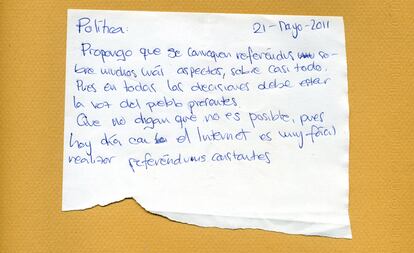 Política: 21-Mayo-2011
Propongo que se convoquen referéndus so-
bre muchos más aspectos, sobre casi todo.
Pues en todas las decisiones debe estar
la voz del pueblo presentes.
Que no digan que no es posible, pues
hoy día con el Internet es muy fácil
realizar referéndums constantes